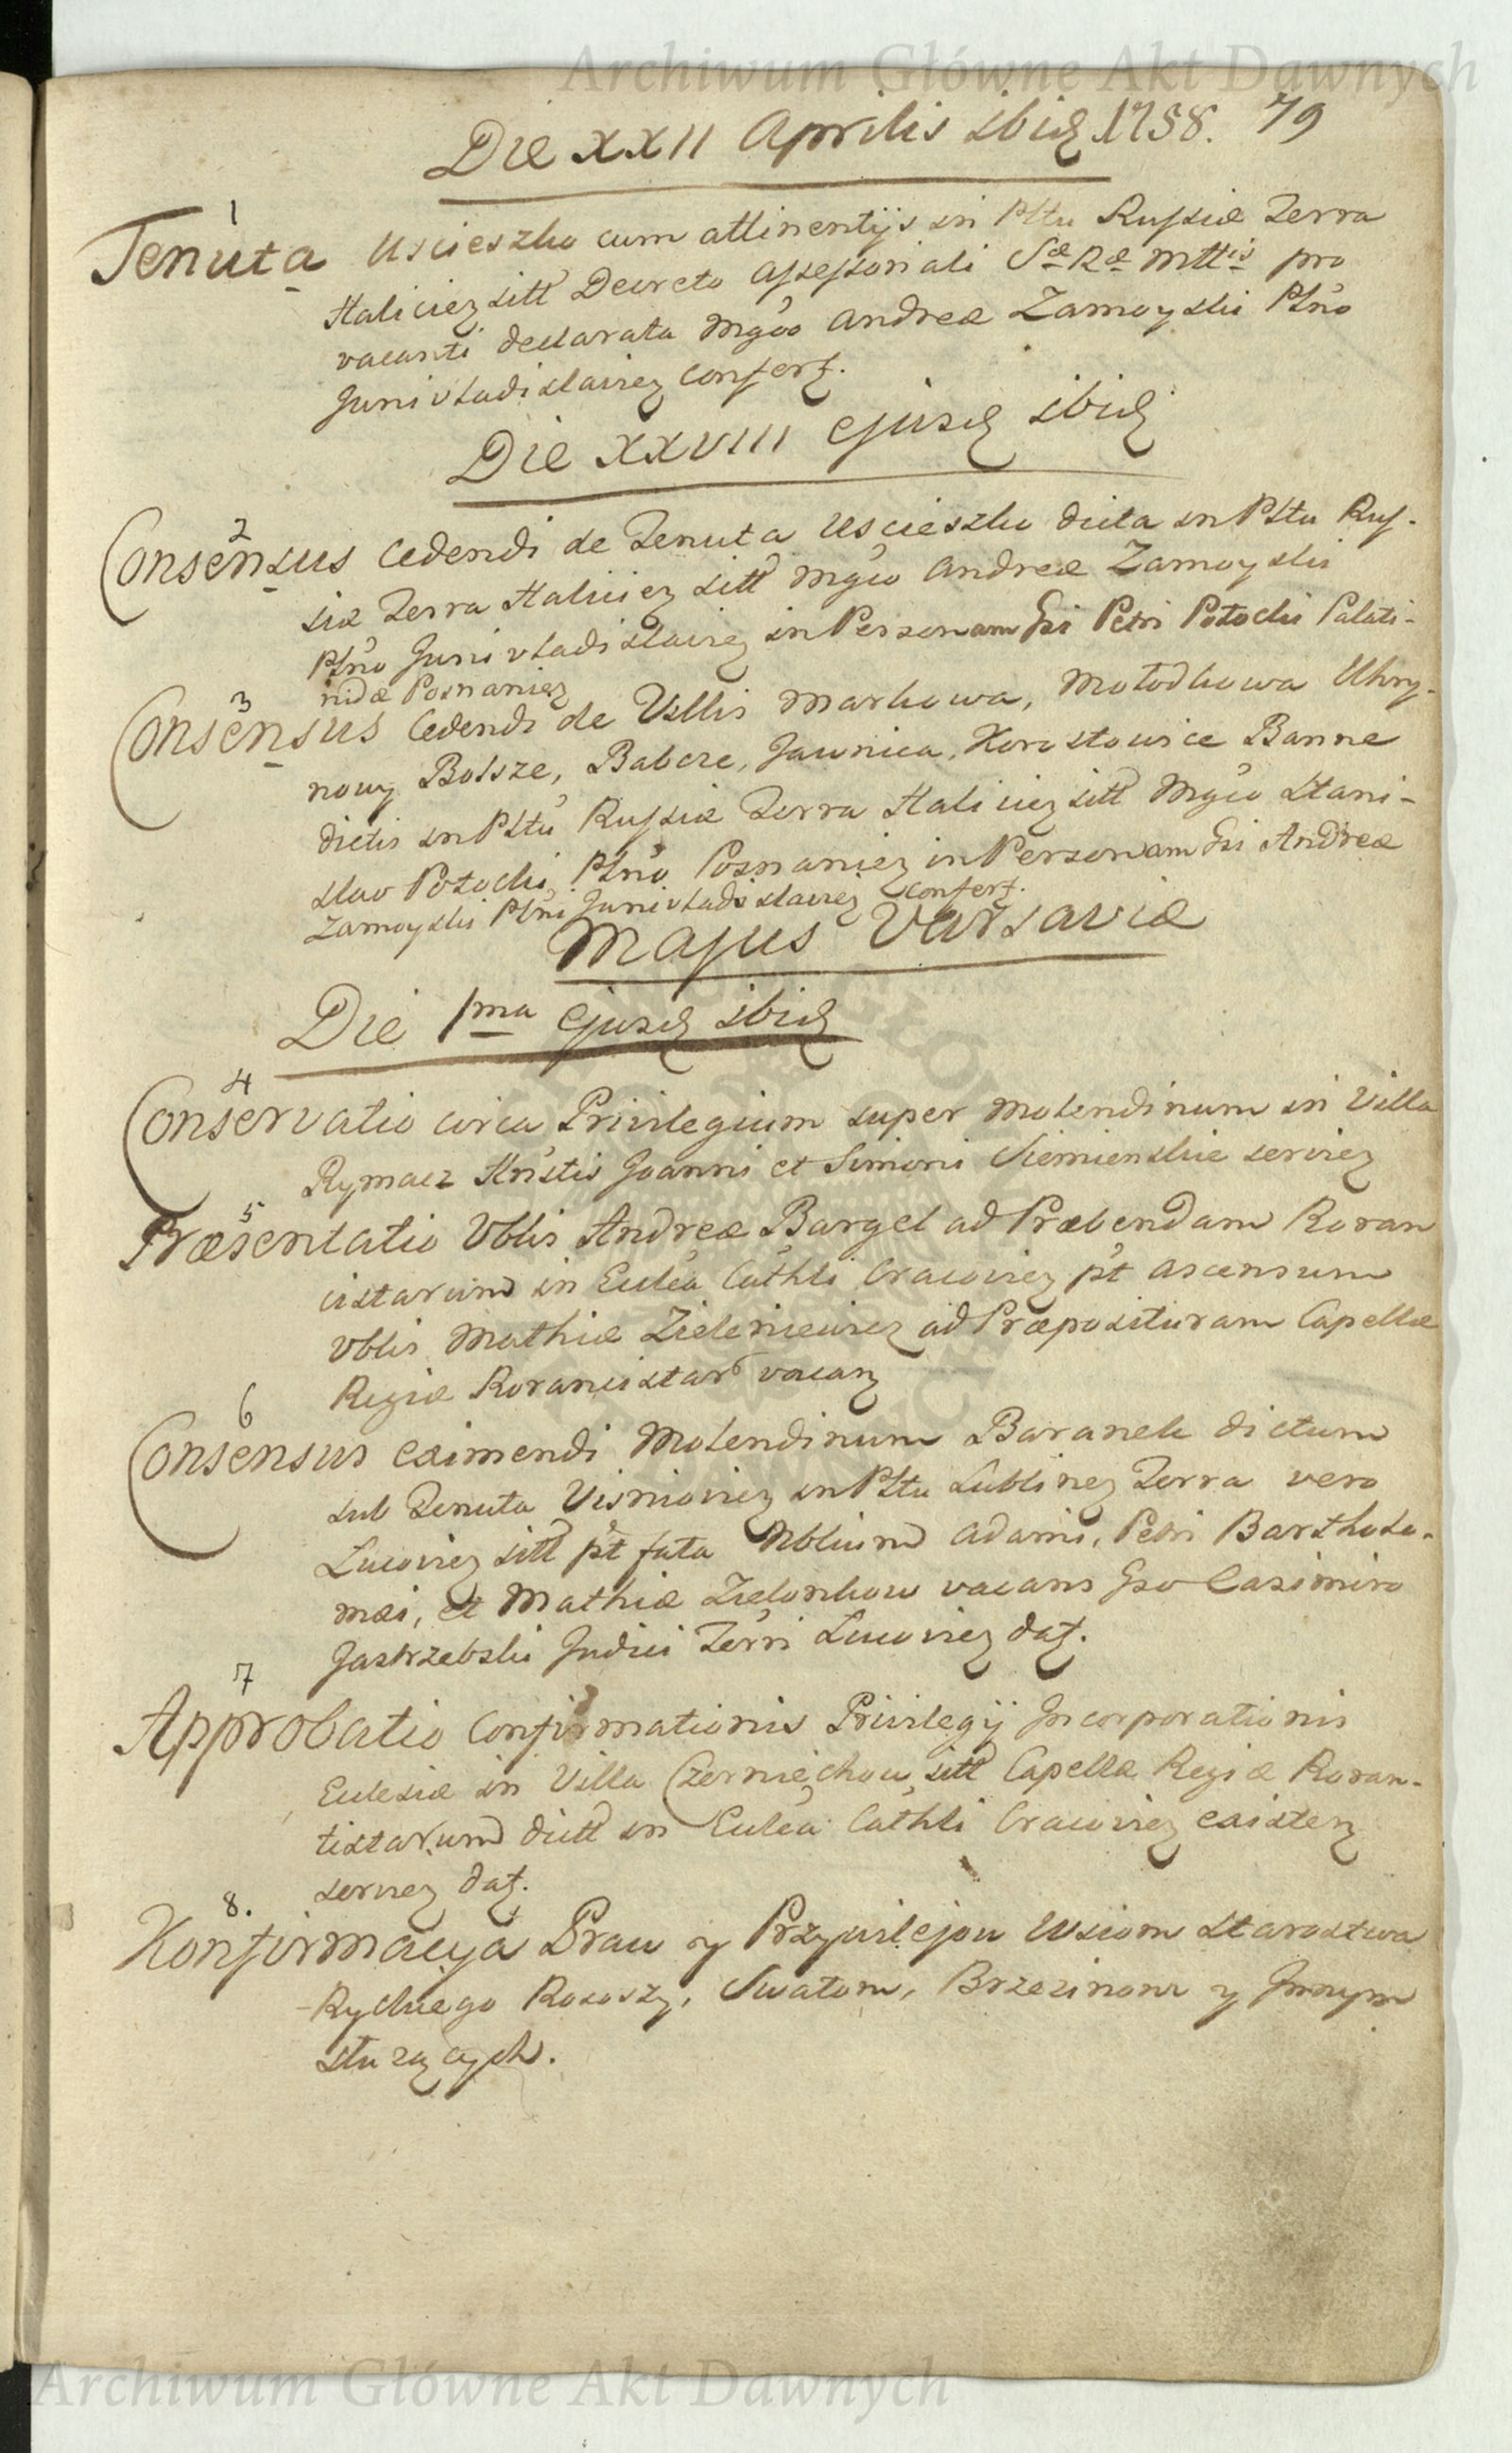 Archiwum Główne Akt Dawnych
Die XXII Aprilis ibid 1758. 79
1
Tenuta Uscieszko cum attinentijs in Pltu Russiæ Terra
Haliciez sitt Decreto Assessoriali Sæ Ræ Mttis pro
vacanti declarata Mgco Andreæ Zamoyski Pltno
Juni vladislaviez confert.
Die XXVIII ejusd ibid
2
Consensus cedendi de Tenuta Uscieszko dicta in Pltu Rus-
siæ Terra Haliciez sitt Mgco Andreæ Zamoyski
Pltno Juni vladislaviez in Personam Gsi Petri Potocki Palati-
nidæ Posnaniez
3
Consensus cedendi de Villis Markowa, Mołodkowa Uhry-
nowy Bolsze, Babcze, Jawnica, Horostowice Banne
dictis in Pltu Russiæ Terra Haliciez sitt Mgco Stani-
slao Potocki Pltno Posnaniez in Personam Gsi Andreæ
Zamoyski Pltni Juni vladislaviez confert.
Majus Varsaviæ
Die 1ma ejusd ibid
4
Conservatio circa Privilegium super Molendinum in Villa
Rymacz Hnstis Joanni et Simoni Siemienskie serviez
5
Præsentatio Vblis Andreæ Bargel ad Præbendam Roran
cistarum in Eccl̃ea Cathli Cracoviez p̃t ascensum
Vblis Mathiæ Zieleniewicz ad Præposituram Capellæ
Regiæ Rorancistar vacanz
6
Consensus eximendi Molendinum Baranek dictum
sub Tenuta Visnioviez in Pltu Lublinez Terra vero
Lucoviez sitt p̃t fata Nblium Adami, Petri Bartholo-
mæi, et Mathiæ Zielonkow vacans Gso Casimiro
Jastrzebski Judici Terri Lucoviez dat.
7
Approbatio Confirmationis Privilegij Incorporationis
Ecclesiæ in Villa Czerniechow sitt Capellæ Regiæ Roran-
tistarum dict in Ecclea Cathli Cracoviez existen
serviez dat.
8.
Konfirmacya Praw y Przywilejow Wsiom Starostwa
Ryckiego Rososzy, Swatom, Brzezinom y Innym
służących.
Archiwum Główne Akt Dawnych